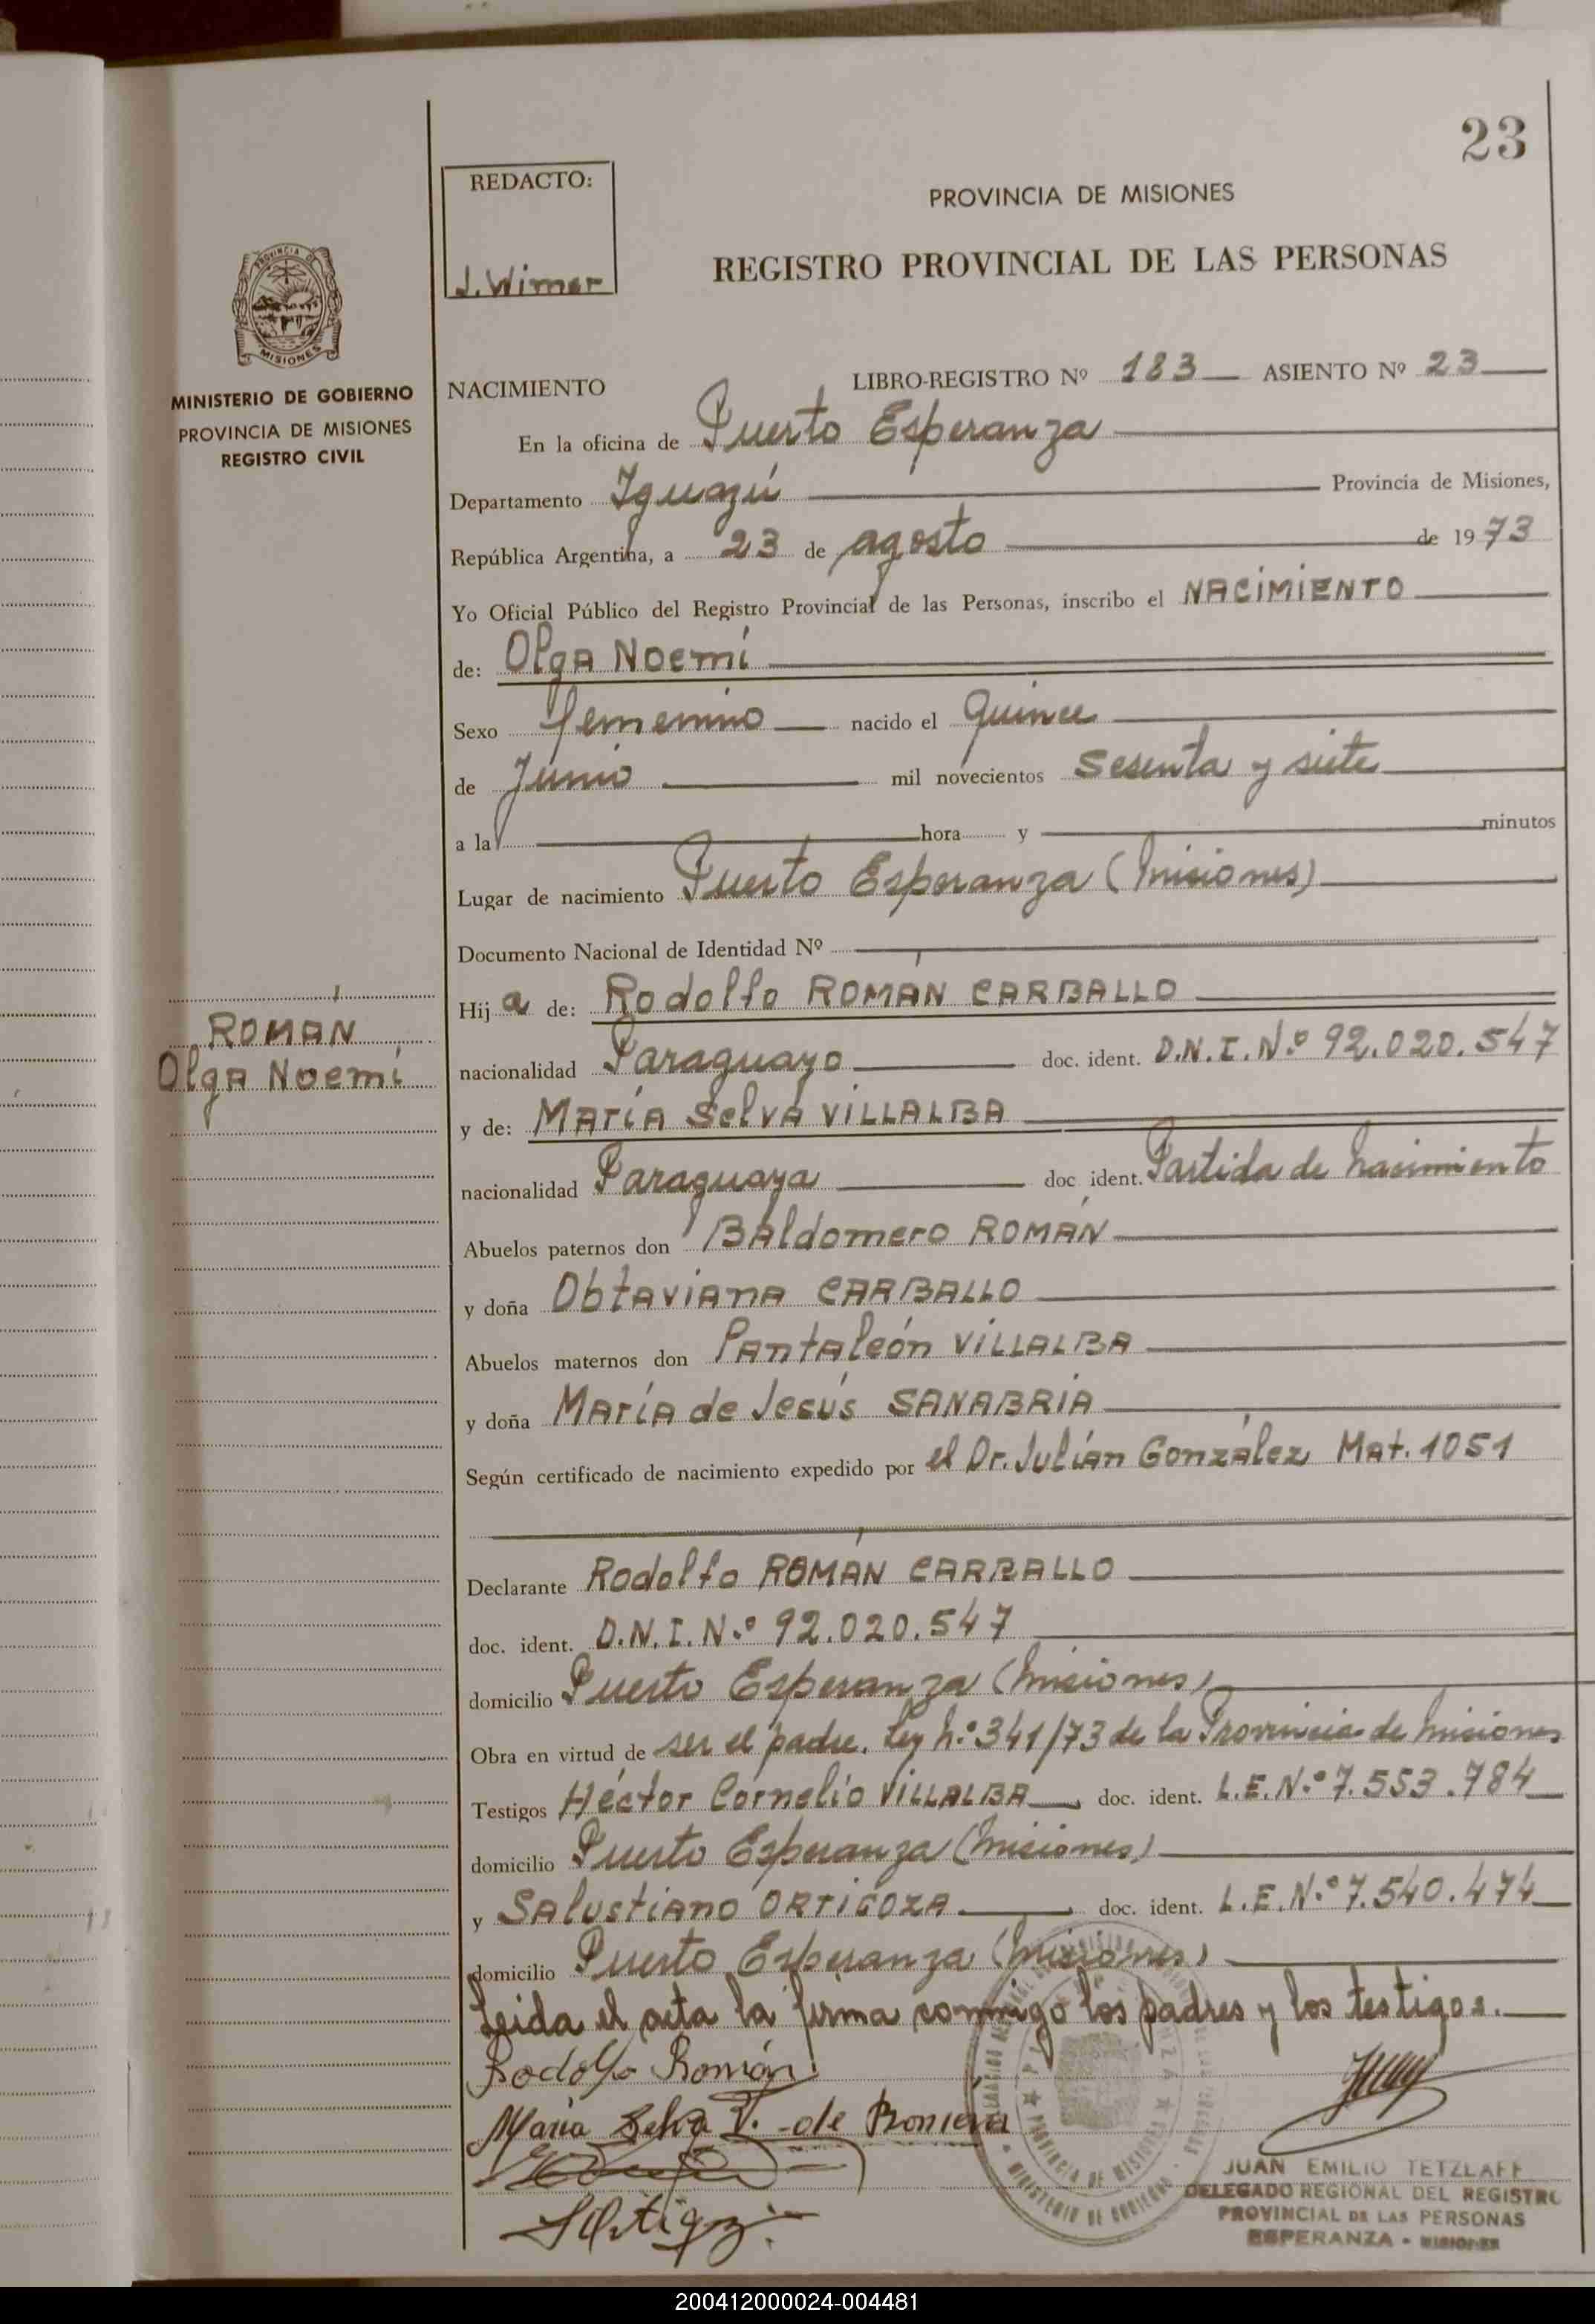 23
REDACTO:
J. Wimer
PROVINCIA DE MISIONES
REGISTRO PROVINCIAL DE LAS PERSONAS
PROVINCIA DE
MISIONES
MINISTERIO DE GOBIERNO
PROVINCIA DE MISIONES
REGISTRO CIVIL
NACIMIENTO LIBRO-REGISTRO Nº 183 ASIENTO Nº 23
En la oficina de Puerto Esperanza
Departamento Iguazú Provincia de Misiones,
República Argentina, a 23 de agosto de 1973
Yo Oficial Público del Registro Provincial de las Personas, inscribo el NACIMIENTO
de: Olga Noemí
Sexo femenino nacido el Quince
de Junio mil novecientos sesenta y siete
a la hora y minutos
Lugar de nacimiento Puerto Esperanza (Misiones)
Documento Nacional de Identidad Nº
Hija de: Rodolfo ROMÁN CARBALLO
nacionalidad Paraguayo doc. ident. D.N.I.N.º 92.020.547
y de: María Selva VILLALBA
nacionalidad Paraguaya doc ident. Partida de nacimiento
Abuelos paternos don Baldomero ROMÁN
y doña Obtaviana CARBALLO
Abuelos maternos don Pantaleón VILLALBA
y doña María de Jesús SANABRIA
Según certificado de nacimiento expedido por el Dr. Julián González Mat. 1051
Declarante Rodolfo ROMÁN CARBALLO
doc. ident. D.N.I.N.º 92.020.547
domicilio Puerto Esperanza (Misiones)
Obra en virtud de ser el padre. Ley n.º 341/73 de la Provincia de Misiones
Testigos Héctor Cornelio VILLALBA doc. ident. L.E.N.º 7.553.784
domicilio Puerto Esperanza (Misiones)
y Salustiano ORTIGOZA doc. ident. L.E.N.º 7.540.474
domicilio Puerto Esperanza (Misiones)
Leida el acta la firma conmigo los padres y los testigos.
Rodolfo Román
María Selva V. de Roman
ROMÁN
Olga Noemí
PROVINCIA DE MISIONES
MINISTERIO DE GOBIERNO
JUAN EMILIO TETZLAFF
DELEGADO REGIONAL DEL REGISTRO
PROVINCIAL DE LAS PERSONAS
ESPERANZA - MISIONES
200412000024-004481